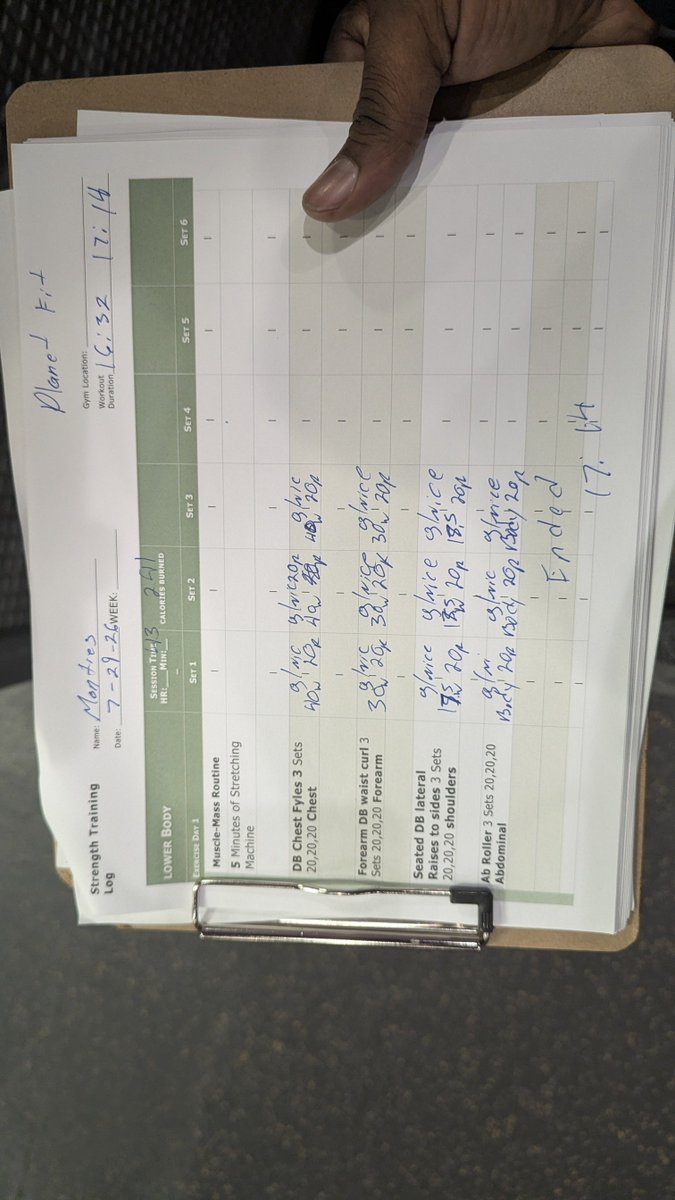 Planet Fit
Strength Training
Log
Name: Montres
Date: 7-29-26 WEEK:
Gym Location:
Workout
Duration 16:32 17:14
LOWER BODY
SESSION TIME
HR: MIN: 43
CALORIES BURNED 251
EXERCISE DAY 1 SET 1 SET 2 SET 3 SET 4 SET 5 SET 6
Muscle-Mass Routine
5 Minutes of Stretching
Machine
DB Chest Fyles 3 Sets
20,20,20 Chest
40w 20r 40w 40w 20r
Forearm DB waist curl 3
Sets 20,20,20 Forearm
30w 20r 30w 20r 30w 20r
Seated DB lateral
Raises to sides 3 Sets
20,20,20 shoulders
20r 20r 20r
Ab Roller 3 Sets 20,20,20
Abdominal
Body 20r Body 20r Body 20r
Ended
17:14